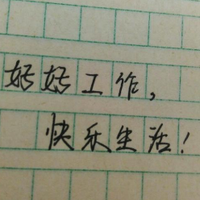 好好工作，
快乐生活！